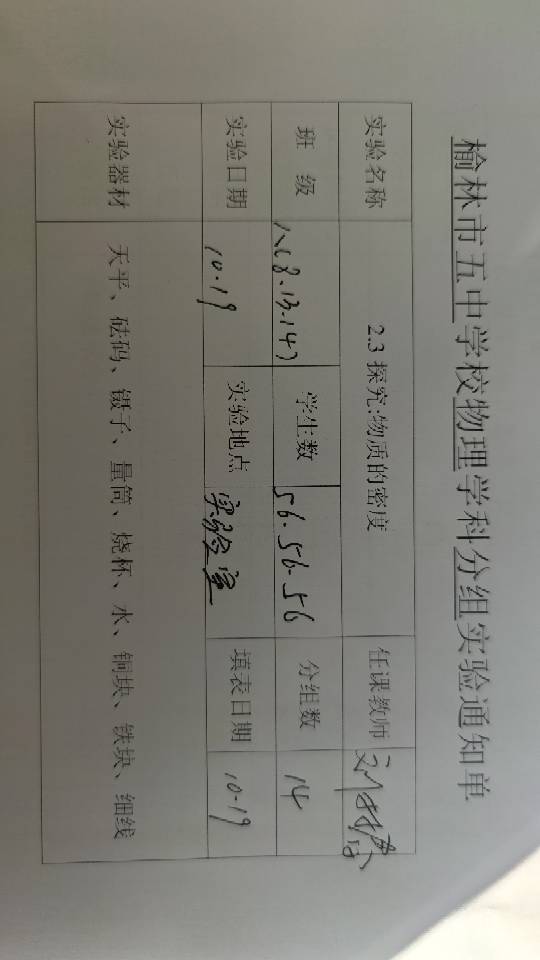 榆林市五中学校物理学科分组实验通知单
实验名称 2.3 探究:物质的密度 任课教师
班 级 八(8.13.14) 学生数 56.56.56 分组数 14
实验日期 10.19 实验地点 实验室 填表日期 10-19
实验器材 天平、砝码、镊子、量筒、烧杯、水、铜块、铁块、细线